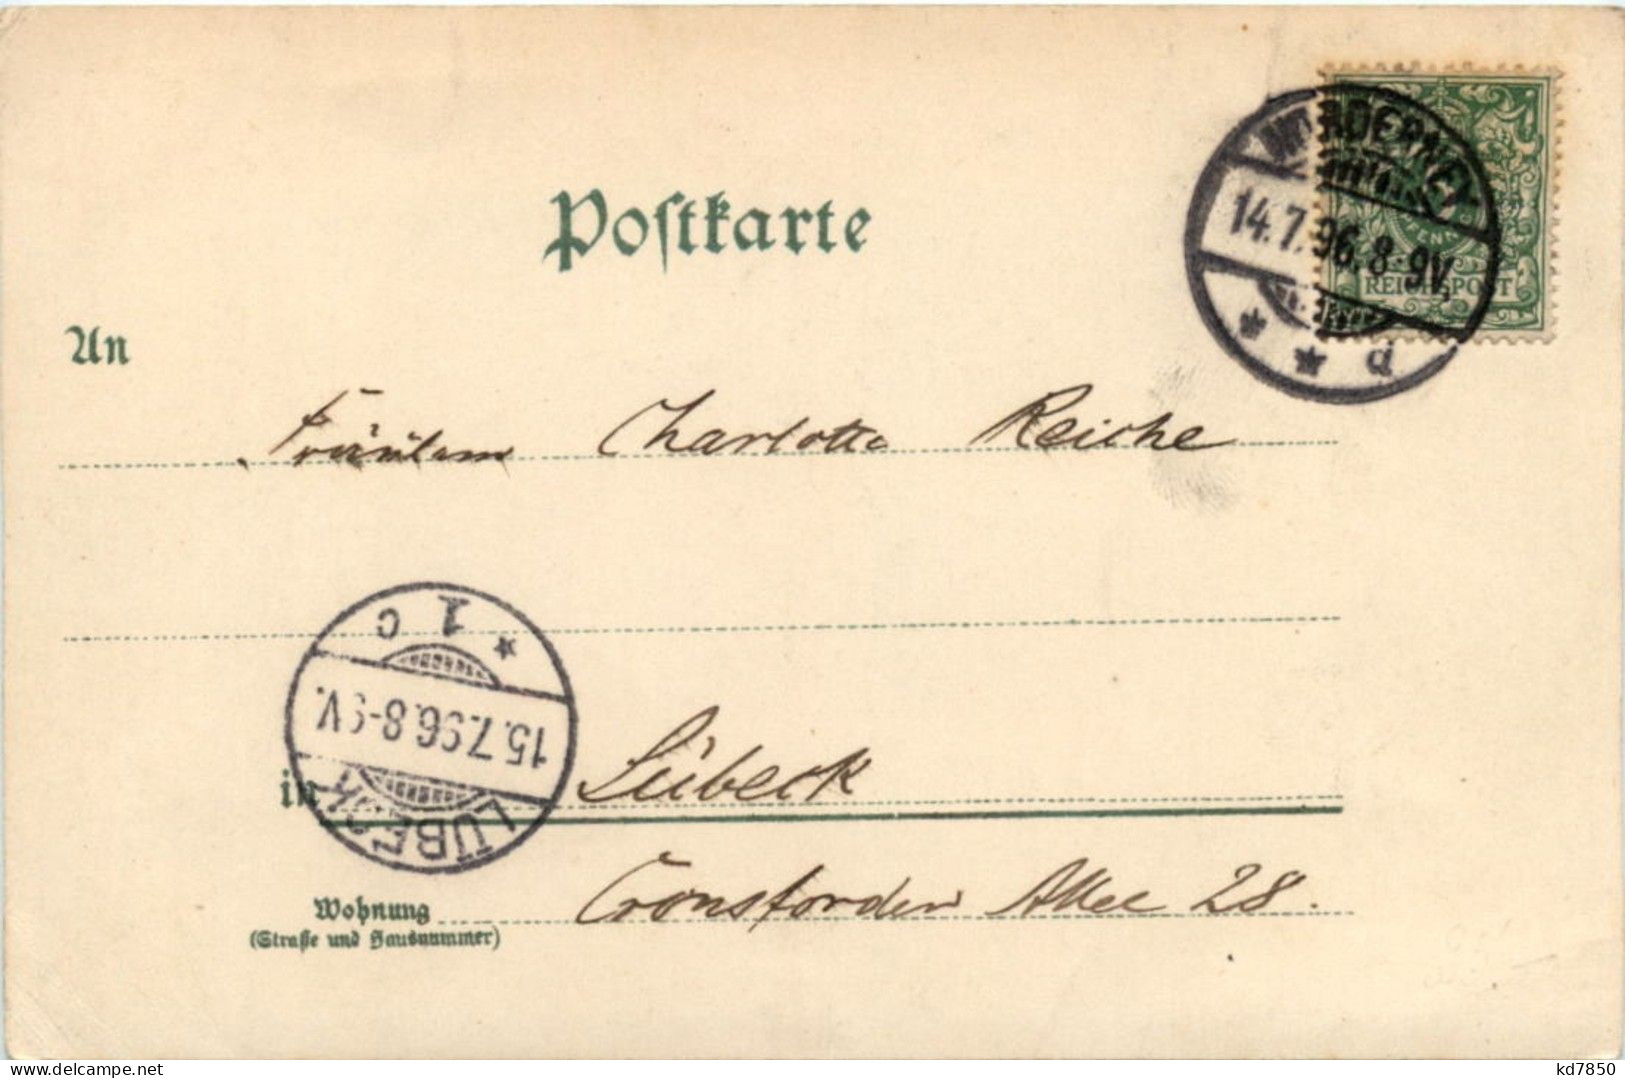 Postkarte
NORDERNEY
14.7.96.8-9V.
d
PFENNIG
REICHSPOST
An
Fräulein Charlotte Reiche
* 1 c
15.7.96.8-9V.
LÜBECK
in Lübeck
Wohnung Cronsforder Allee 28.
(Straße und Hausnummer)
delcampe.net
kd7850